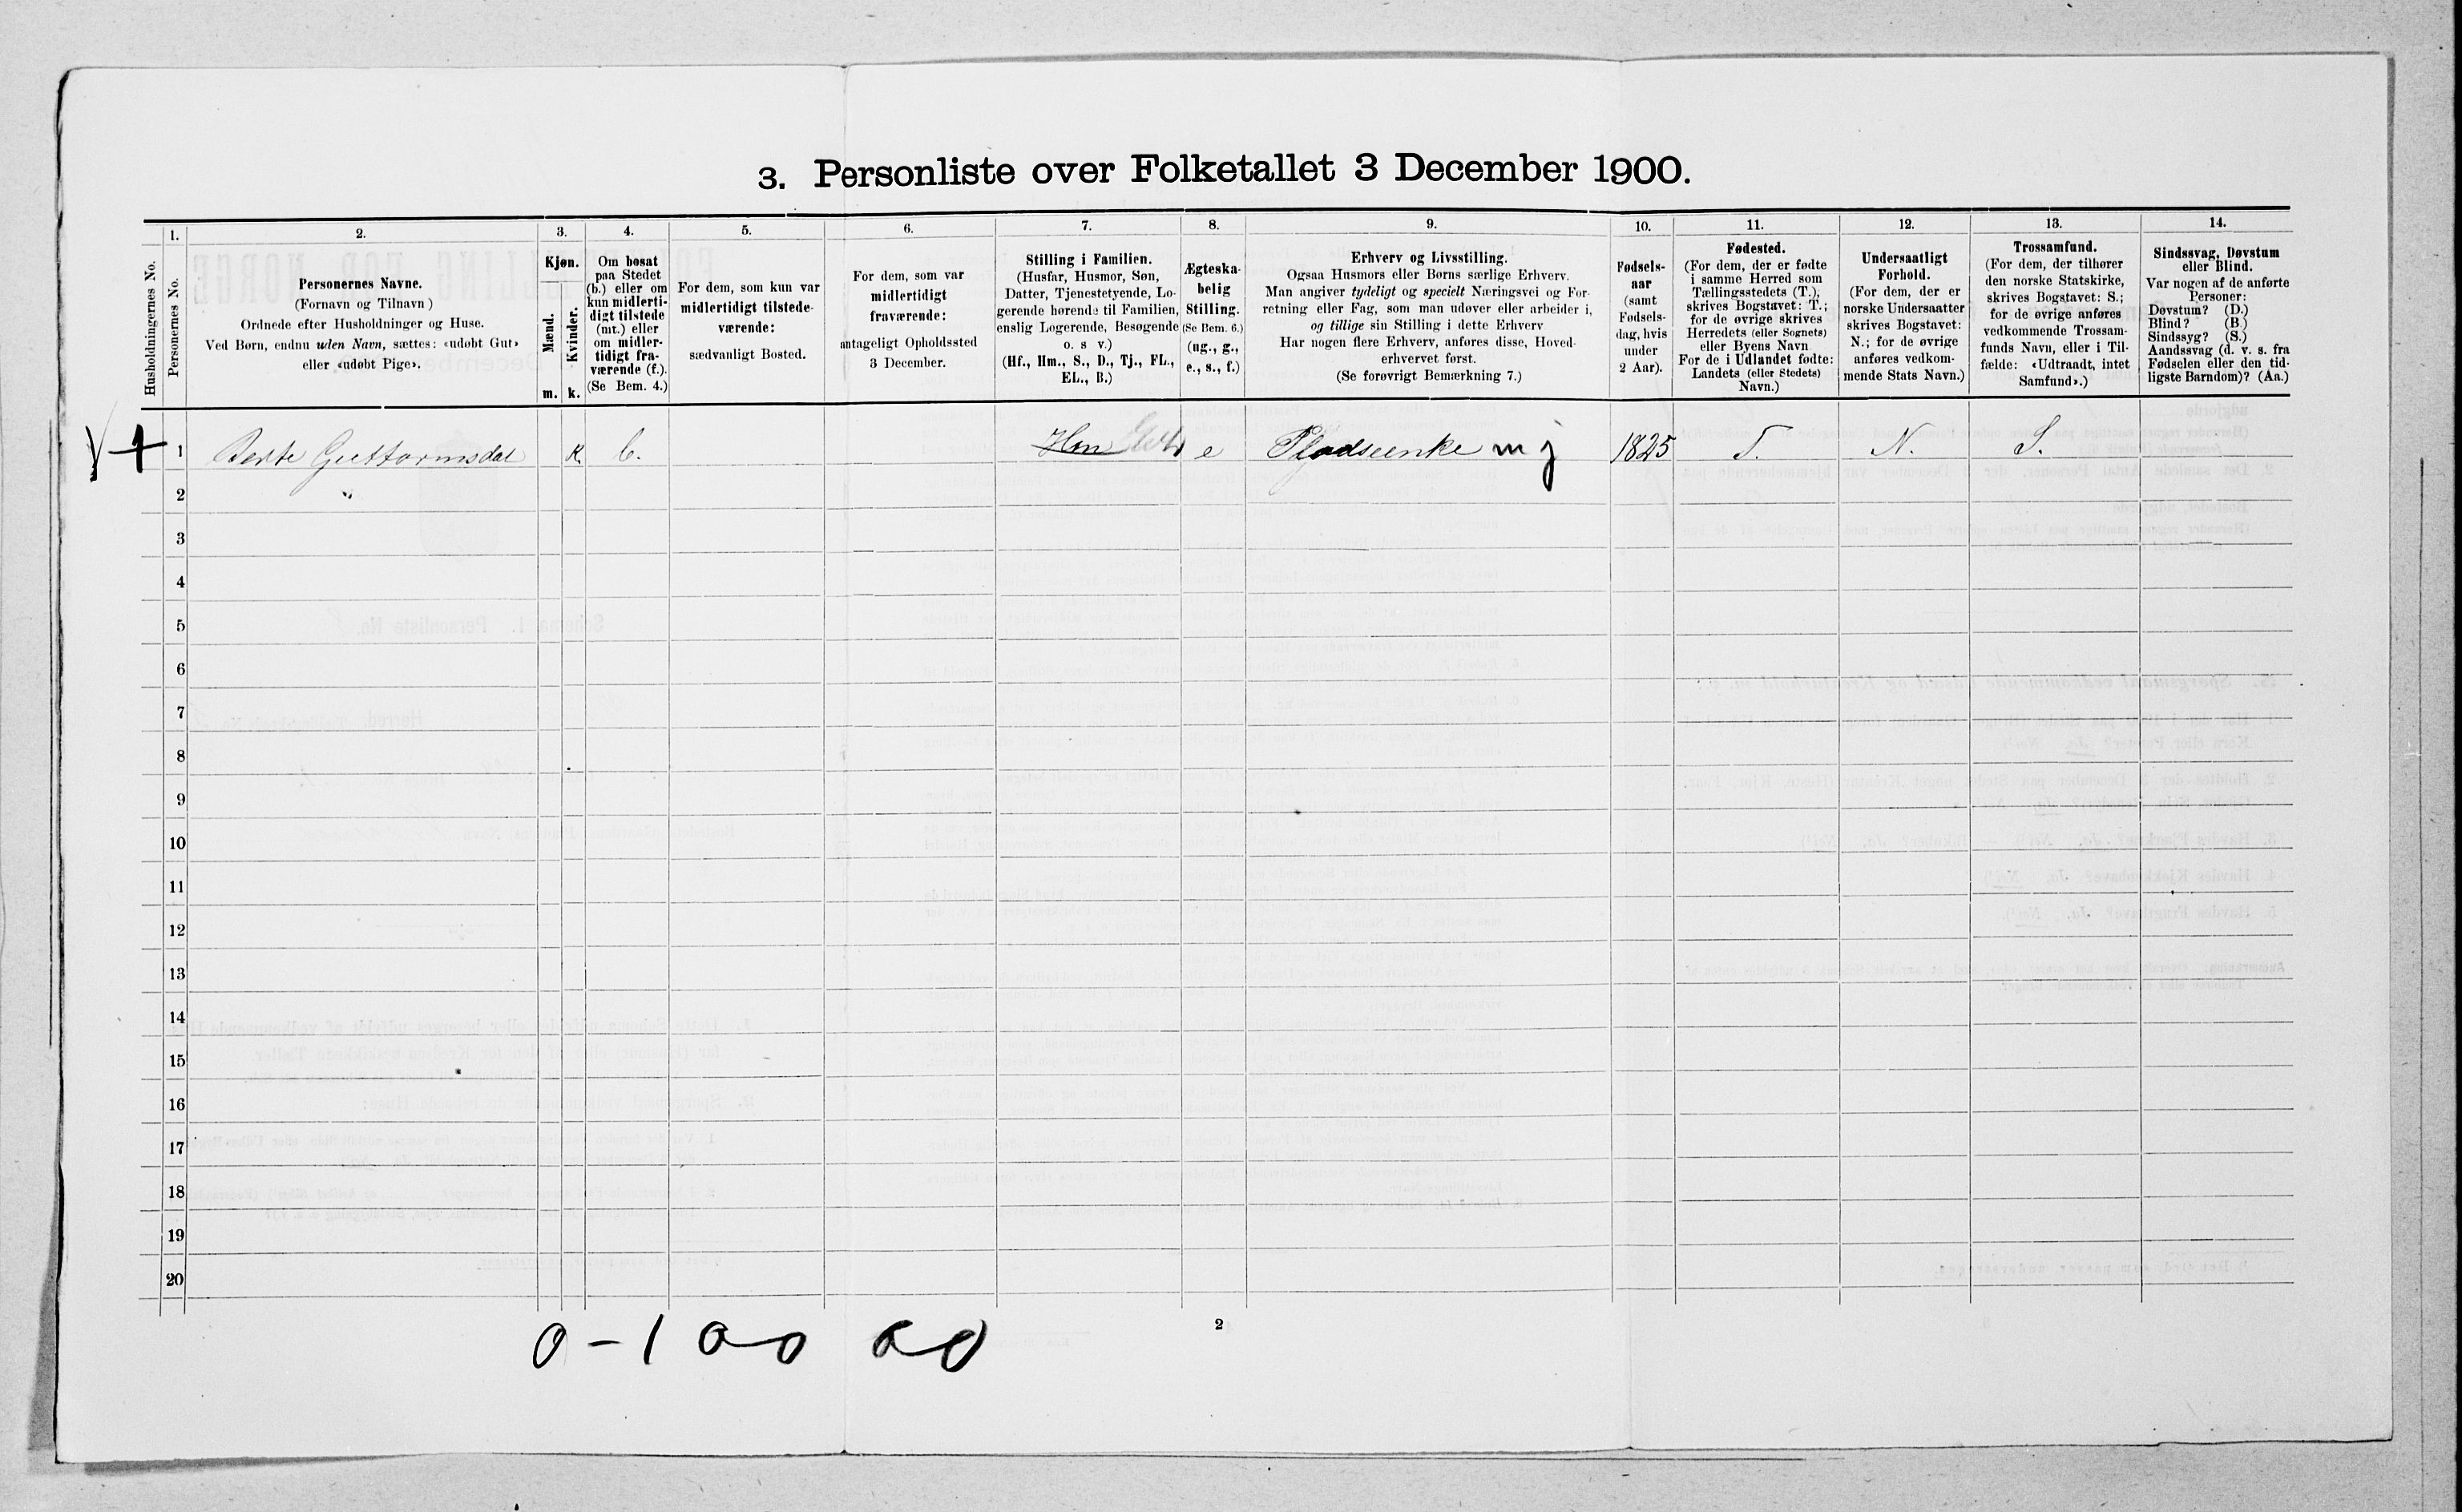 3. Personliste over Folketallet 3 December 1900.
Husholdningernes No.
1.
Personernes No.
2.
Personernes Navne.
(Fornavn og Tilnavn)
Ordnede efter Husholdninger og Huse.
Ved Børn, endnu uden Navn, sættes: «udøbt Gut»
eller «udøbt Pige».
3.
Kjøn.
Mænd.
Kvinder.
m. k.
4.
Om bosat
paa Stedet
(b.) eller om
kun midlerti-
digt tilstede
(mt.) eller
om midler-
tidigt fra-
værende (f.).
(Se Bem. 4.)
5.
For dem, som kun var
midlertidigt tilstede-
værende:
sædvanligt Bosted.
6.
For dem, som var
midlertidigt
fraværende:
antageligt Opholdssted
3 December.
7.
Stilling i Familien.
(Husfar, Husmor, Søn,
Datter, Tjenestetyende, Lo-
gerende hørende til Familien,
enslig Logerende, Besøgende
o. s v.)
(Hf., Hm., S., D., Tj., FL.,
EL., B.)
8.
Ægteska-
belig
Stilling.
(Se Bem. 6.)
(ug., g.,
e., s., f.)
9.
Erhverv og Livsstilling.
Ogsaa Husmors eller Børns særlige Erhverv.
Man angiver tydeligt og specielt Næringsvei og For-
retning eller Fag, som man udøver eller arbeider i,
og tillige sin Stilling i dette Erhverv
Har nogen flere Erhverv, anføres disse, Hoved-
erhvervet først.
(Se forøvrigt Bemærkning 7.)
10.
Fødsels-
aar
(samt
Fødsels-
dag, hvis
under
2 Aar).
11.
Fødested.
(For dem, der er fødte
i samme Herred som
Tællingsstedets (T.),
skrives Bogstavet: T.;
for de øvrige skrives
Herredets (eller Sognets)
eller Byens Navn
For de i Udlandet fødte:
Landets (eller Stedets)
Navn.)
12.
Undersaatligt
Forhold.
(For dem, der er
norske Undersaatter
skrives Bogstavet:
N.; for de øvrige
anføres vedkom-
mende Stats Navn.)
13.
Trossamfund.
(For dem, der tilhører
den norske Statskirke,
skrives Bogstavet: S.;
for de øvrige anføres
vedkommende Trossam-
funds Navn, eller i Til-
fælde: «Udtraadt, intet
Samfund».)
14.
Sindssvag, Døvstum
eller Blind.
Var nogen af de anførte
Personer:
Døvstum? (D.)
Blind? (B.)
Sindssyg? (S.)
Aandssvag (d. v. s. fra
Fødselen eller den tid-
ligste Barndom)? (Aa.)
1 Berte Guttormsdal k b. Hm e Pladsenke m j 1825 T. N. S.
2
3
4
5
6
7
8
9
10
11
12
13
14
15
16
17
18
19
20
0 – 1 0 0 0 0
2